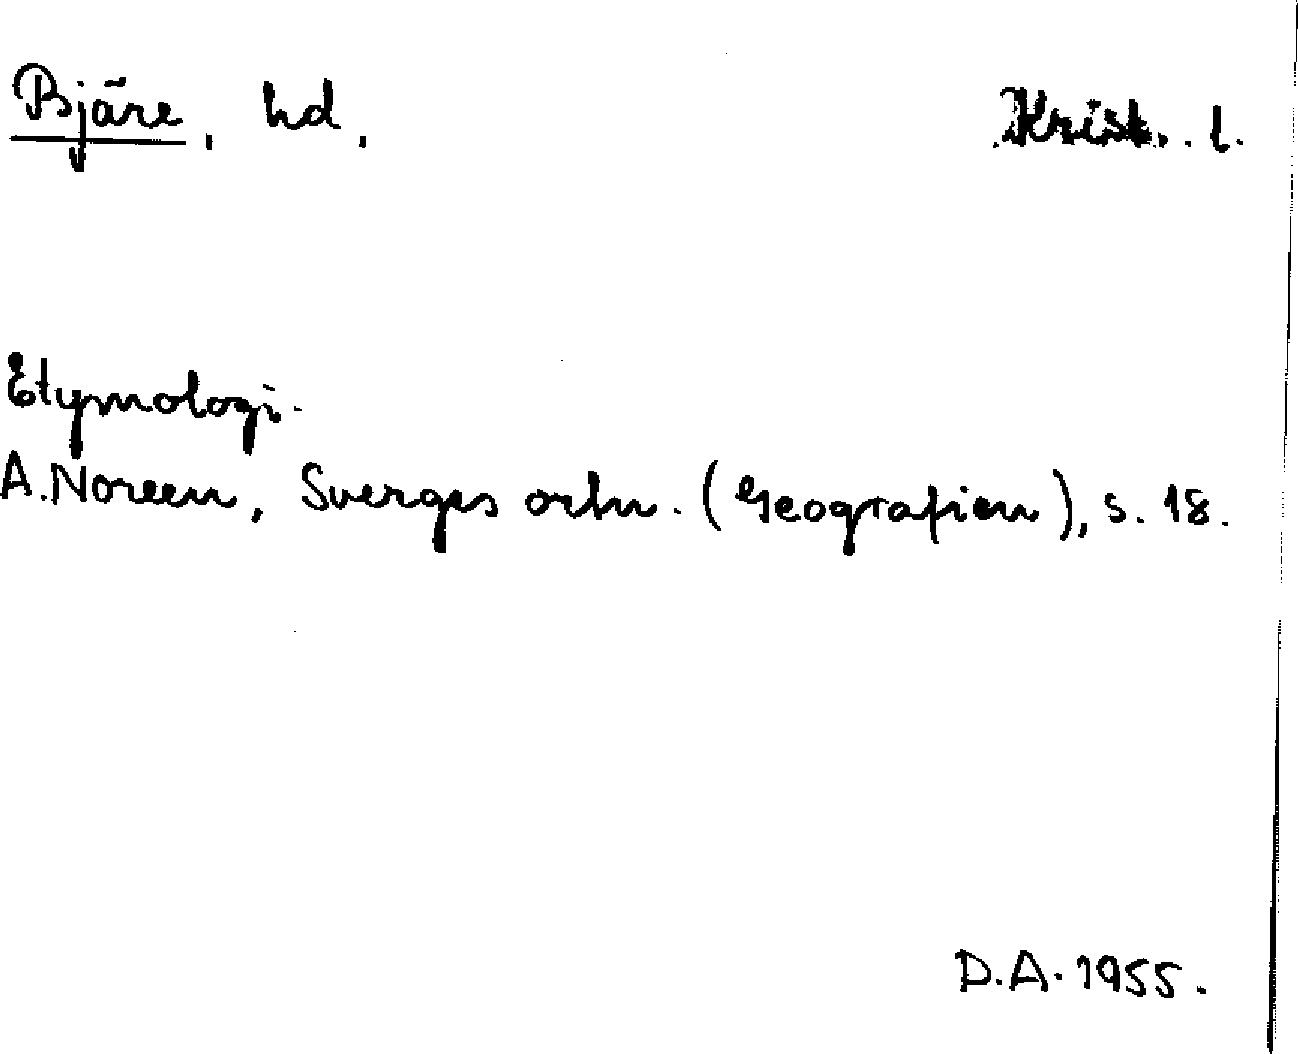 Bjäre, hd. Krist. l.
Etymologi.
A. Noreen, Sverges ortn. (Geografien), s. 18.
D.A. 1955.